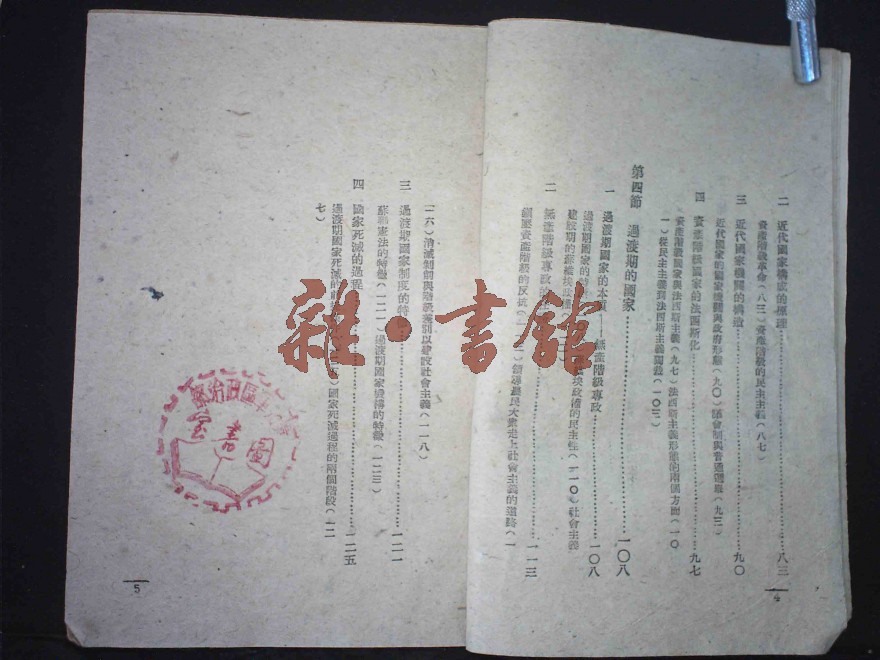 二 近代國家機構的原理……八三
資產階級革命(八三)資產階級的民主主義(八七)
三 近代國家機關的構造……九〇
近代國家的國家機關與政府形態(九〇)議會制與普通選舉(九三)
四 資產階級國家的法西斯化……九七
資產階級國家與法西斯主義(九七)法西斯主義形態的兩個方面(一〇
一)從民主主義到法西斯主義獨裁(一〇三)
第四節 過渡期的國家……一〇八
一 過渡期國家的本質——無產階級專政……一〇八
過渡期國家的特
建設期的蘇維埃政權 埃政權的民主性(一一〇)社會主義
二 無產階級專政的 ……一一三
鎮壓資產階級的反抗 領導農民大衆走上社會主義的道路(一
一六)消滅 與階級差別以建設社會主義(一一八)
三 過渡期國家制度的特 ……一二一
蘇聯憲法的特徵(一二一)過渡期國家機構的特徵(一二三)
四 國家死滅的過程……一二五
過渡期國家死滅的 國家死滅過程的兩個階段(一二
七)
4
5
圖書室
雜·書館